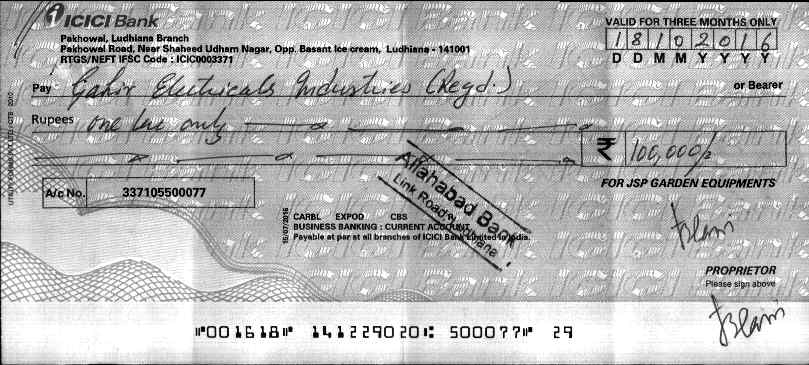 ICICI Bank
Pakhowal, Ludhiana Branch
Pakhowal Road, Near Shaheed Udham Nagar, Opp. Basant Ice cream, Ludhiana - 141001
RTGS/NEFT IFSC Code : ICIC0003371
VALID FOR THREE MONTHS ONLY
18102016
D D M M Y Y Y Y
Pay Gahir Electricals Industries (Regd.) or Bearer
Rupees one lac only
₹ 100,000/-
A/c No. 337105500077
FOR JSP GARDEN EQUIPMENTS
Allahabad Bank
Link Road, Ludhiana
CARBL EXPOD CBS
BUSINESS BANKING : CURRENT ACCOUNT
Payable at par at all branches of ICICI Bank Limited in India.
15/07/2016
PROPRIETOR
Please sign above
⑈001618⑈ 141229020⑆ 500077⑈ 29